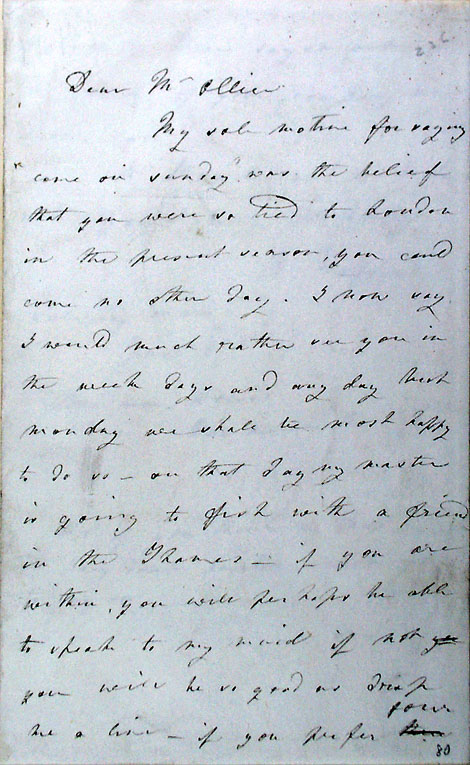 Dear Mr Ollier
My sole motive for saying
"come on sunday" was the belief
that you were so tied to London
in the present season, you could
come no other day. I now say
I would much rather see you in
the week days and any day but
monday we shall be most happy
to do so - on that day my master
is going to fish with a friend
in the Thames - if you are
within, you will perhaps be able
to speak to my maid if not
you will be so good as drop
me a line - if you prefer your
80